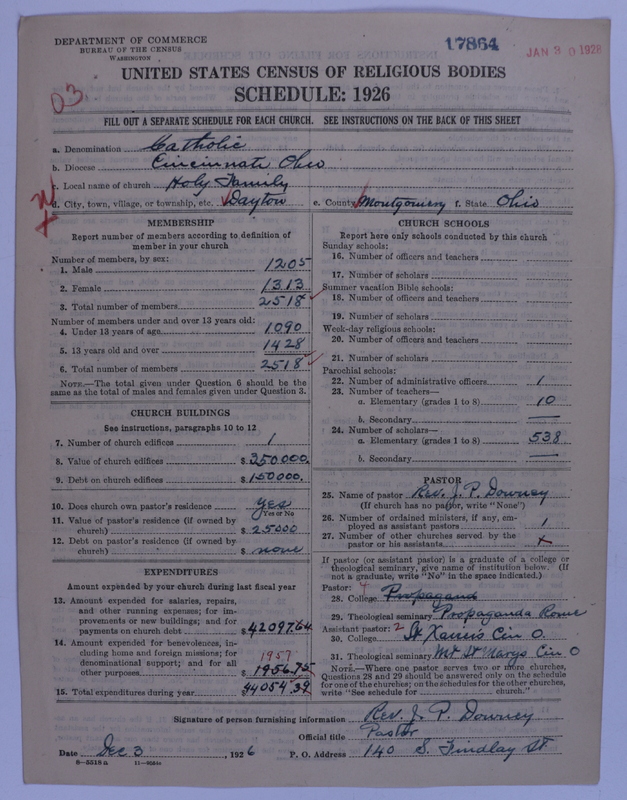 DEPARTMENT OF COMMERCE
BUREAU OF THE CENSUS
WASHINGTON
17864
JAN 30 1928
UNITED STATES CENSUS OF RELIGIOUS BODIES
SCHEDULE: 1926
FILL OUT A SEPARATE SCHEDULE FOR EACH CHURCH. SEE INSTRUCTIONS ON THE BACK OF THIS SHEET
a. Denomination Catholic
b. Diocese Cincinnati Ohio
c. Local name of church Holy Family
d. City, town, village, or township, etc. Dayton e. County Montgomery f. State Ohio
MEMBERSHIP
Report number of members according to definition of
member in your church
Number of members, by sex:
1. Male 1205
2. Female 1313
3. Total number of members 2518
Number of members under and over 13 years old:
4. Under 13 years of age 1090
5. 13 years old and over 1428
6. Total number of members 2518
NOTE.—The total given under Question 6 should be
same as the total of males and females given under Question 3.
CHURCH BUILDINGS
See instructions, paragraphs 10 to 12
7. Number of church edifices 1
8. Value of church edifices $350000.
9. Debt on church edifices $150000.
10. Does church own pastor's residence yes
(Yes or No
11. Value of pastor's residence (if owned by
church) $25000
12. Debt on pastor's residence (if owned by
church) $none
EXPENDITURES
Amount expended by your church during last fiscal year
13. Amount expended for salaries, repairs,
and other running expenses; for im-
provements or new buildings; and for
payments on church debt $42097.64
14. Amount expended for benevolences, in-
cluding home and foreign missions; for
denominational support; and for all 1957
other purposes $1956.75
15. Total expenditures during year $44054.39
CHURCH SCHOOLS
Report here only schools conducted by this church
Sunday schools:
16. Number of officers and teachers
17. Number of scholars
Summer vacation Bible schools:
18. Number of officers and teachers
19. Number of scholars
Week-day religious schools:
20. Number of officers and teachers
21. Number of scholars
Parochial schools:
22. Number of administrative officers 1
23. Number of teachers—
a. Elementary (grades 1 to 8) 10
b. Secondary —
24. Number of scholars—
a. Elementary (grades 1 to 8) 538
b. Secondary —
PASTOR
25. Name of pastor Rev. J. P. Downey
(If church has no pastor, write "None")
26. Number of ordained ministers, if any, em-
ployed as assistant pastors 1
27. Number of other churches served by the
pastor or his assistants x
If pastor (or assistant pastor) is a graduate of a college or
theological seminary, give name of institution below. (If
not a graduate, write "No" in the space indicated.)
Pastor:
28. College Propagand
29. Theological seminary Propaganda Rome
Assistant pastor: 2
30. College St Xaviers Cin O.
31. Theological seminary Mt St Marys Cin O
NOTE.—Where one pastor serves two or more churches,
Questions 28 and 29 should be answered only on the schedule
for one of the churches; on the schedules for the other churches,
write "See schedule for church."
Signature of person furnishing information Rev. J. P. Downey
Official title Pastor
Date Dec 3, 1926 P. O. Address 140 S. Findlay St
8—5518 a